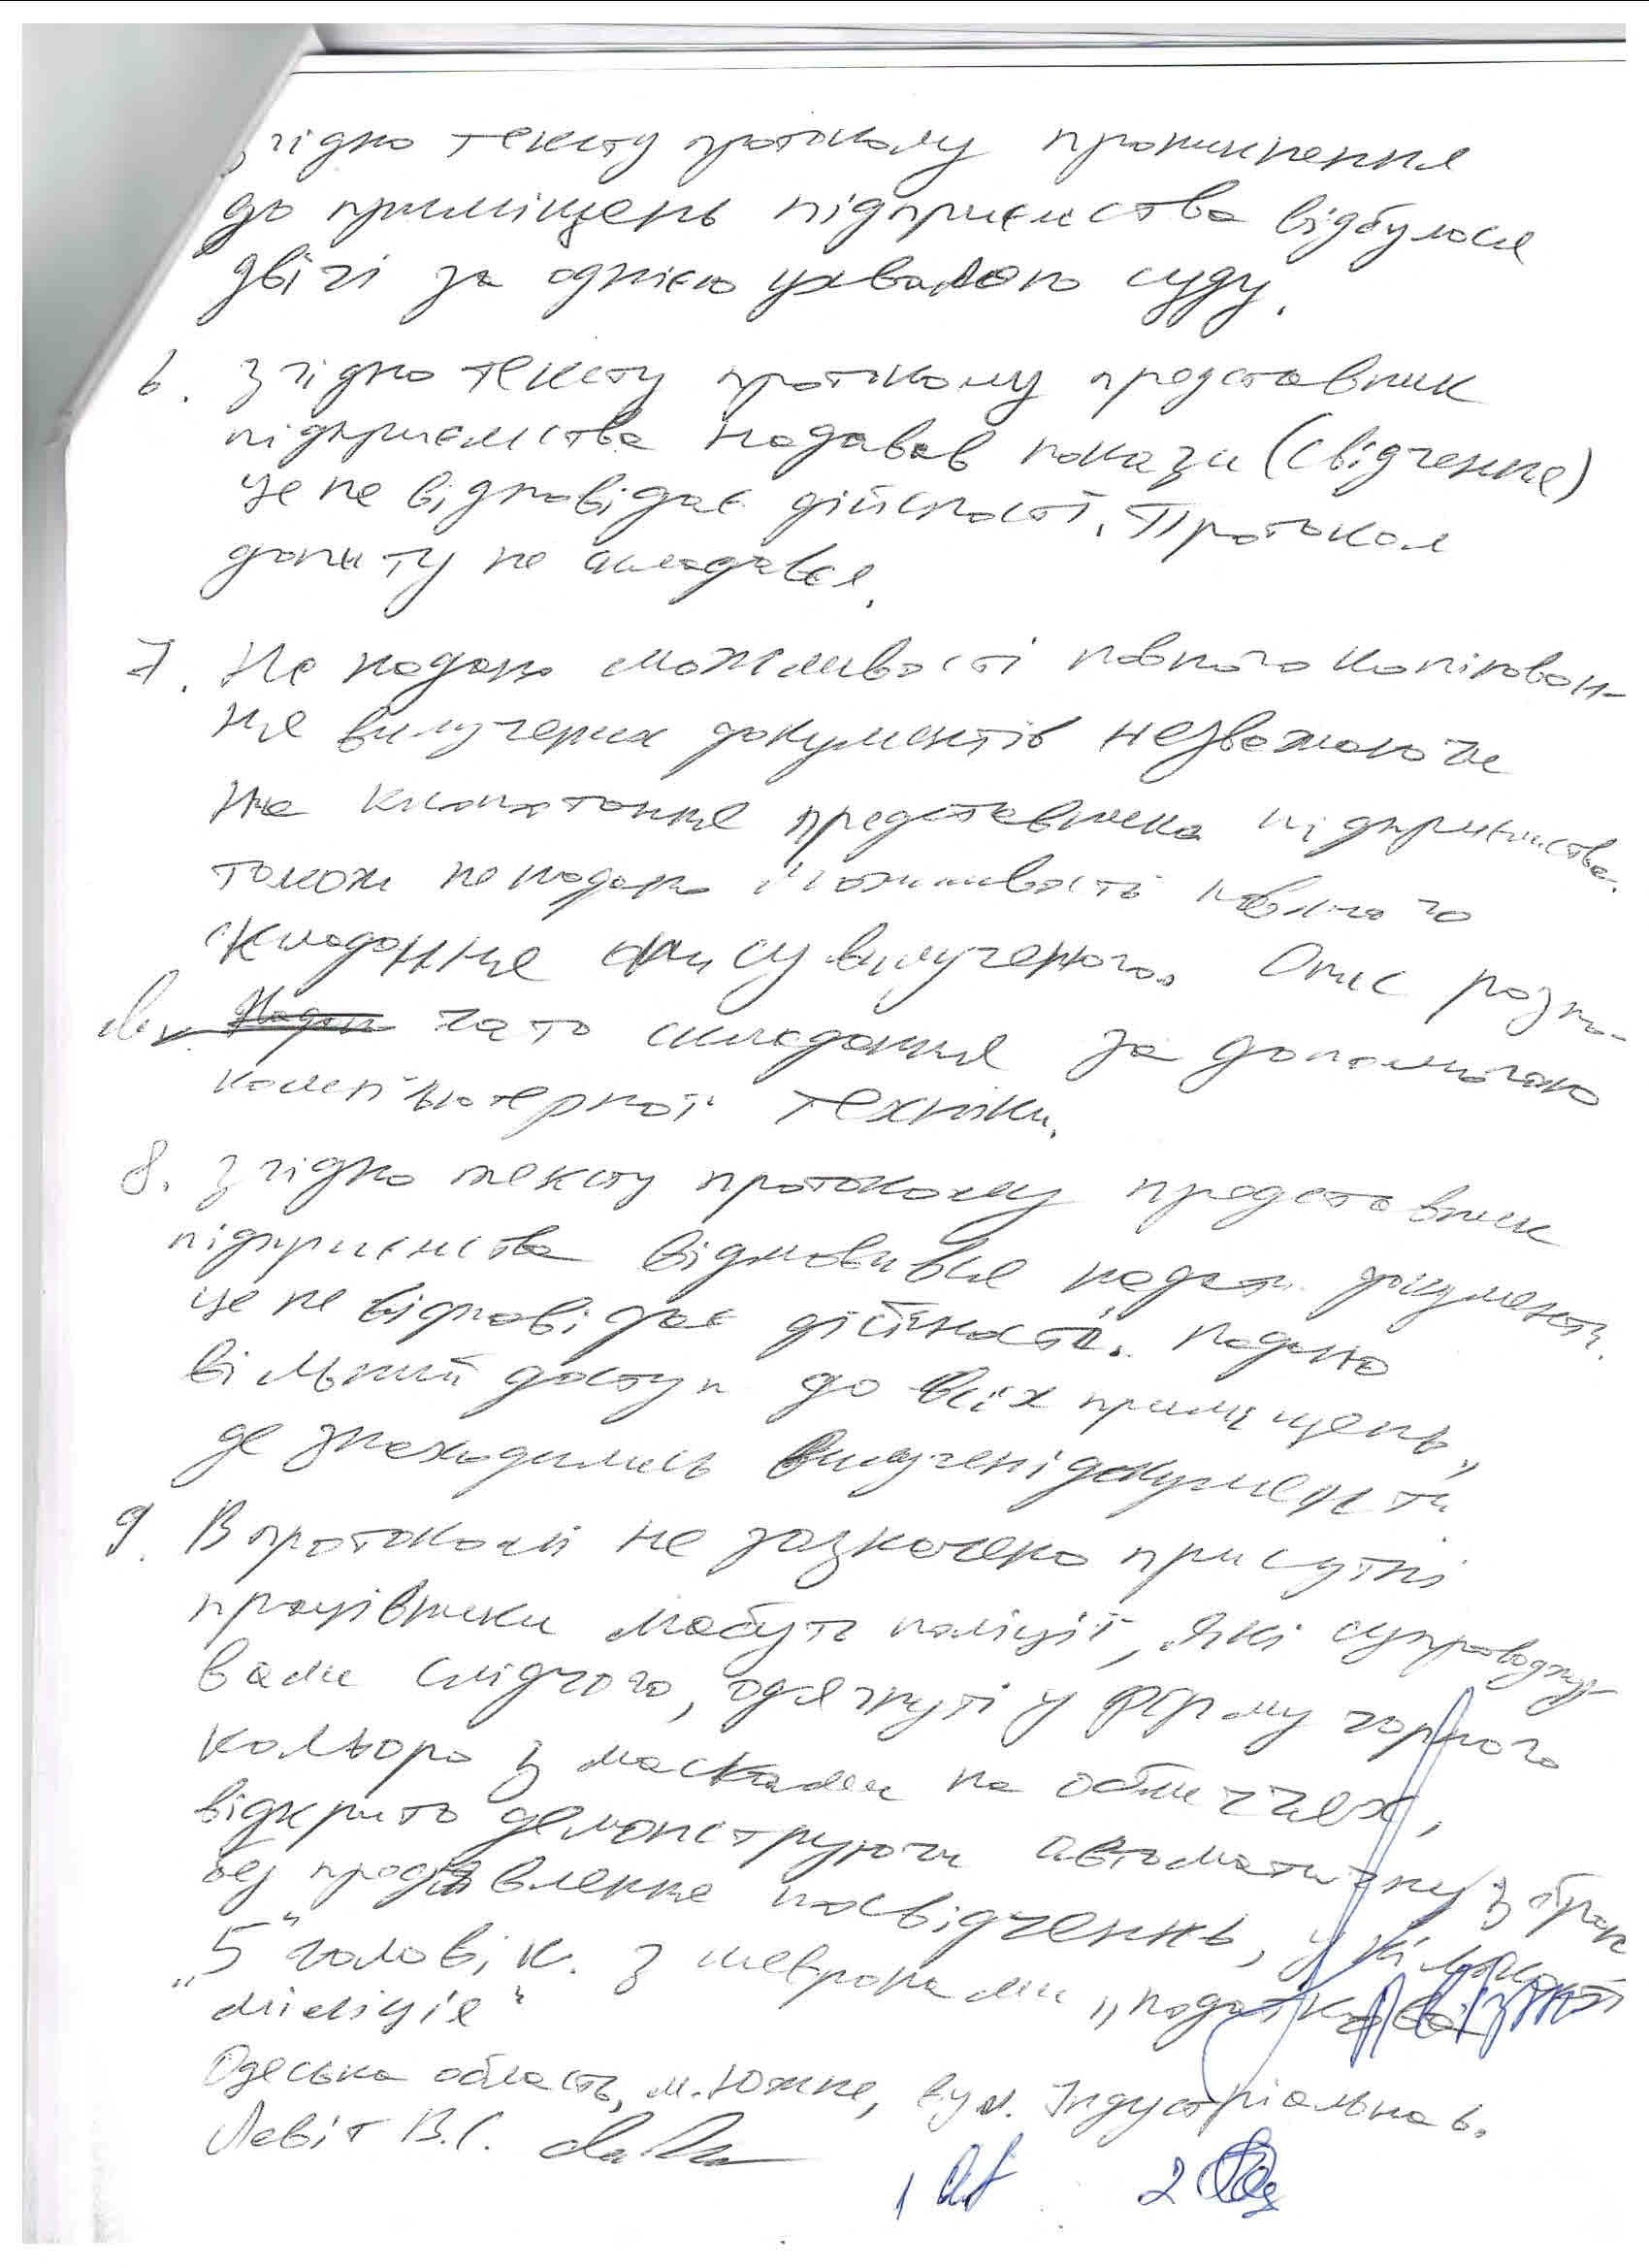 згідно тексту протоколу проникнення
до приміщень підприємства відбулося
двічі за однією ухвалою суду.
6. Згідно тексту протоколу представник
підприємства надавав покази (свідчення)
це не відповідає дійсності. Протокол
допиту не складався.
7. Не надано можливості повного копіюван-
ня вилучених документів незважаючи
на клопотання представника підприємства.
також не надано можливості повного
складання опису вилученого. Опис розпо-
чато складання за допомогою
комп'ютерної техніки.
8. Згідно тексту протоколу представник
підприємства відмовився надати документи.
це не відповідає дійсності. Надано
вільний доступ до всіх приміщень,
де знаходились вилучені документи.
9. В протоколі не зазначено присутні
працівники мабуть поліції, які супроводжу-
вали слідчого, одягнуті у форму чорного
кольора з масками на обличчях,
відкрито демонструючи автоматичну зброю
без пред'явлення посвідчень, у кількості
"5" чоловік. З шевронами „податкова
міліція"
Одеська область, м. Южне, вул. Індустріальна 6.
Левіт В.С.
1 2